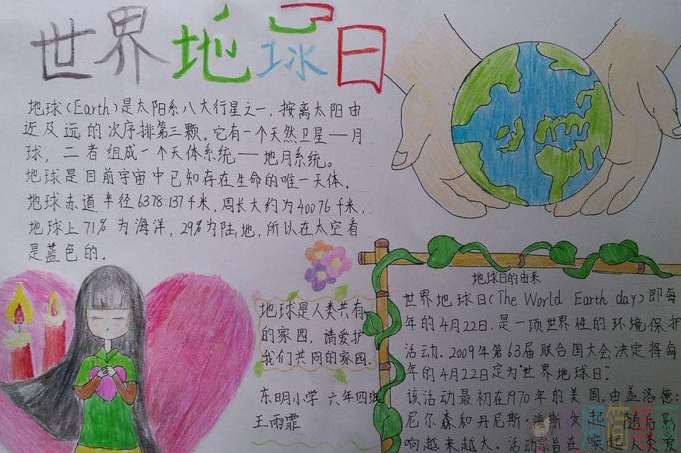 世界地球日
地球(Earth)是太阳系八大行星之一,按离太阳由
近及远的次序排第三颗。它有一个天然卫星—月
球,二者组成一个天体系统—地月系统。
地球是目前宇宙中已知存在生命的唯一天体.
地球赤道半径6378.137千米,周长大约为40076千米,
地球上71%为海洋,29%为陆地,所以在太空看
是蓝色的.
地球是人类共有
的家园,请爱护
我们共同的家园.
东明小学 六年四班
王雨霏
地球日的由来
世界地球日(The World Earth day)即每
年的4月22日.是一项世界性的环境保护
活动.2009年第63届联合国大会决定将每
年的4月22日定为"世界地球日".
该活动最初在1970年的美国.由盖洛德·
尼尔森和丹尼斯·海斯发起,随后影
响越来越大。活动宗旨在唤起人类爱